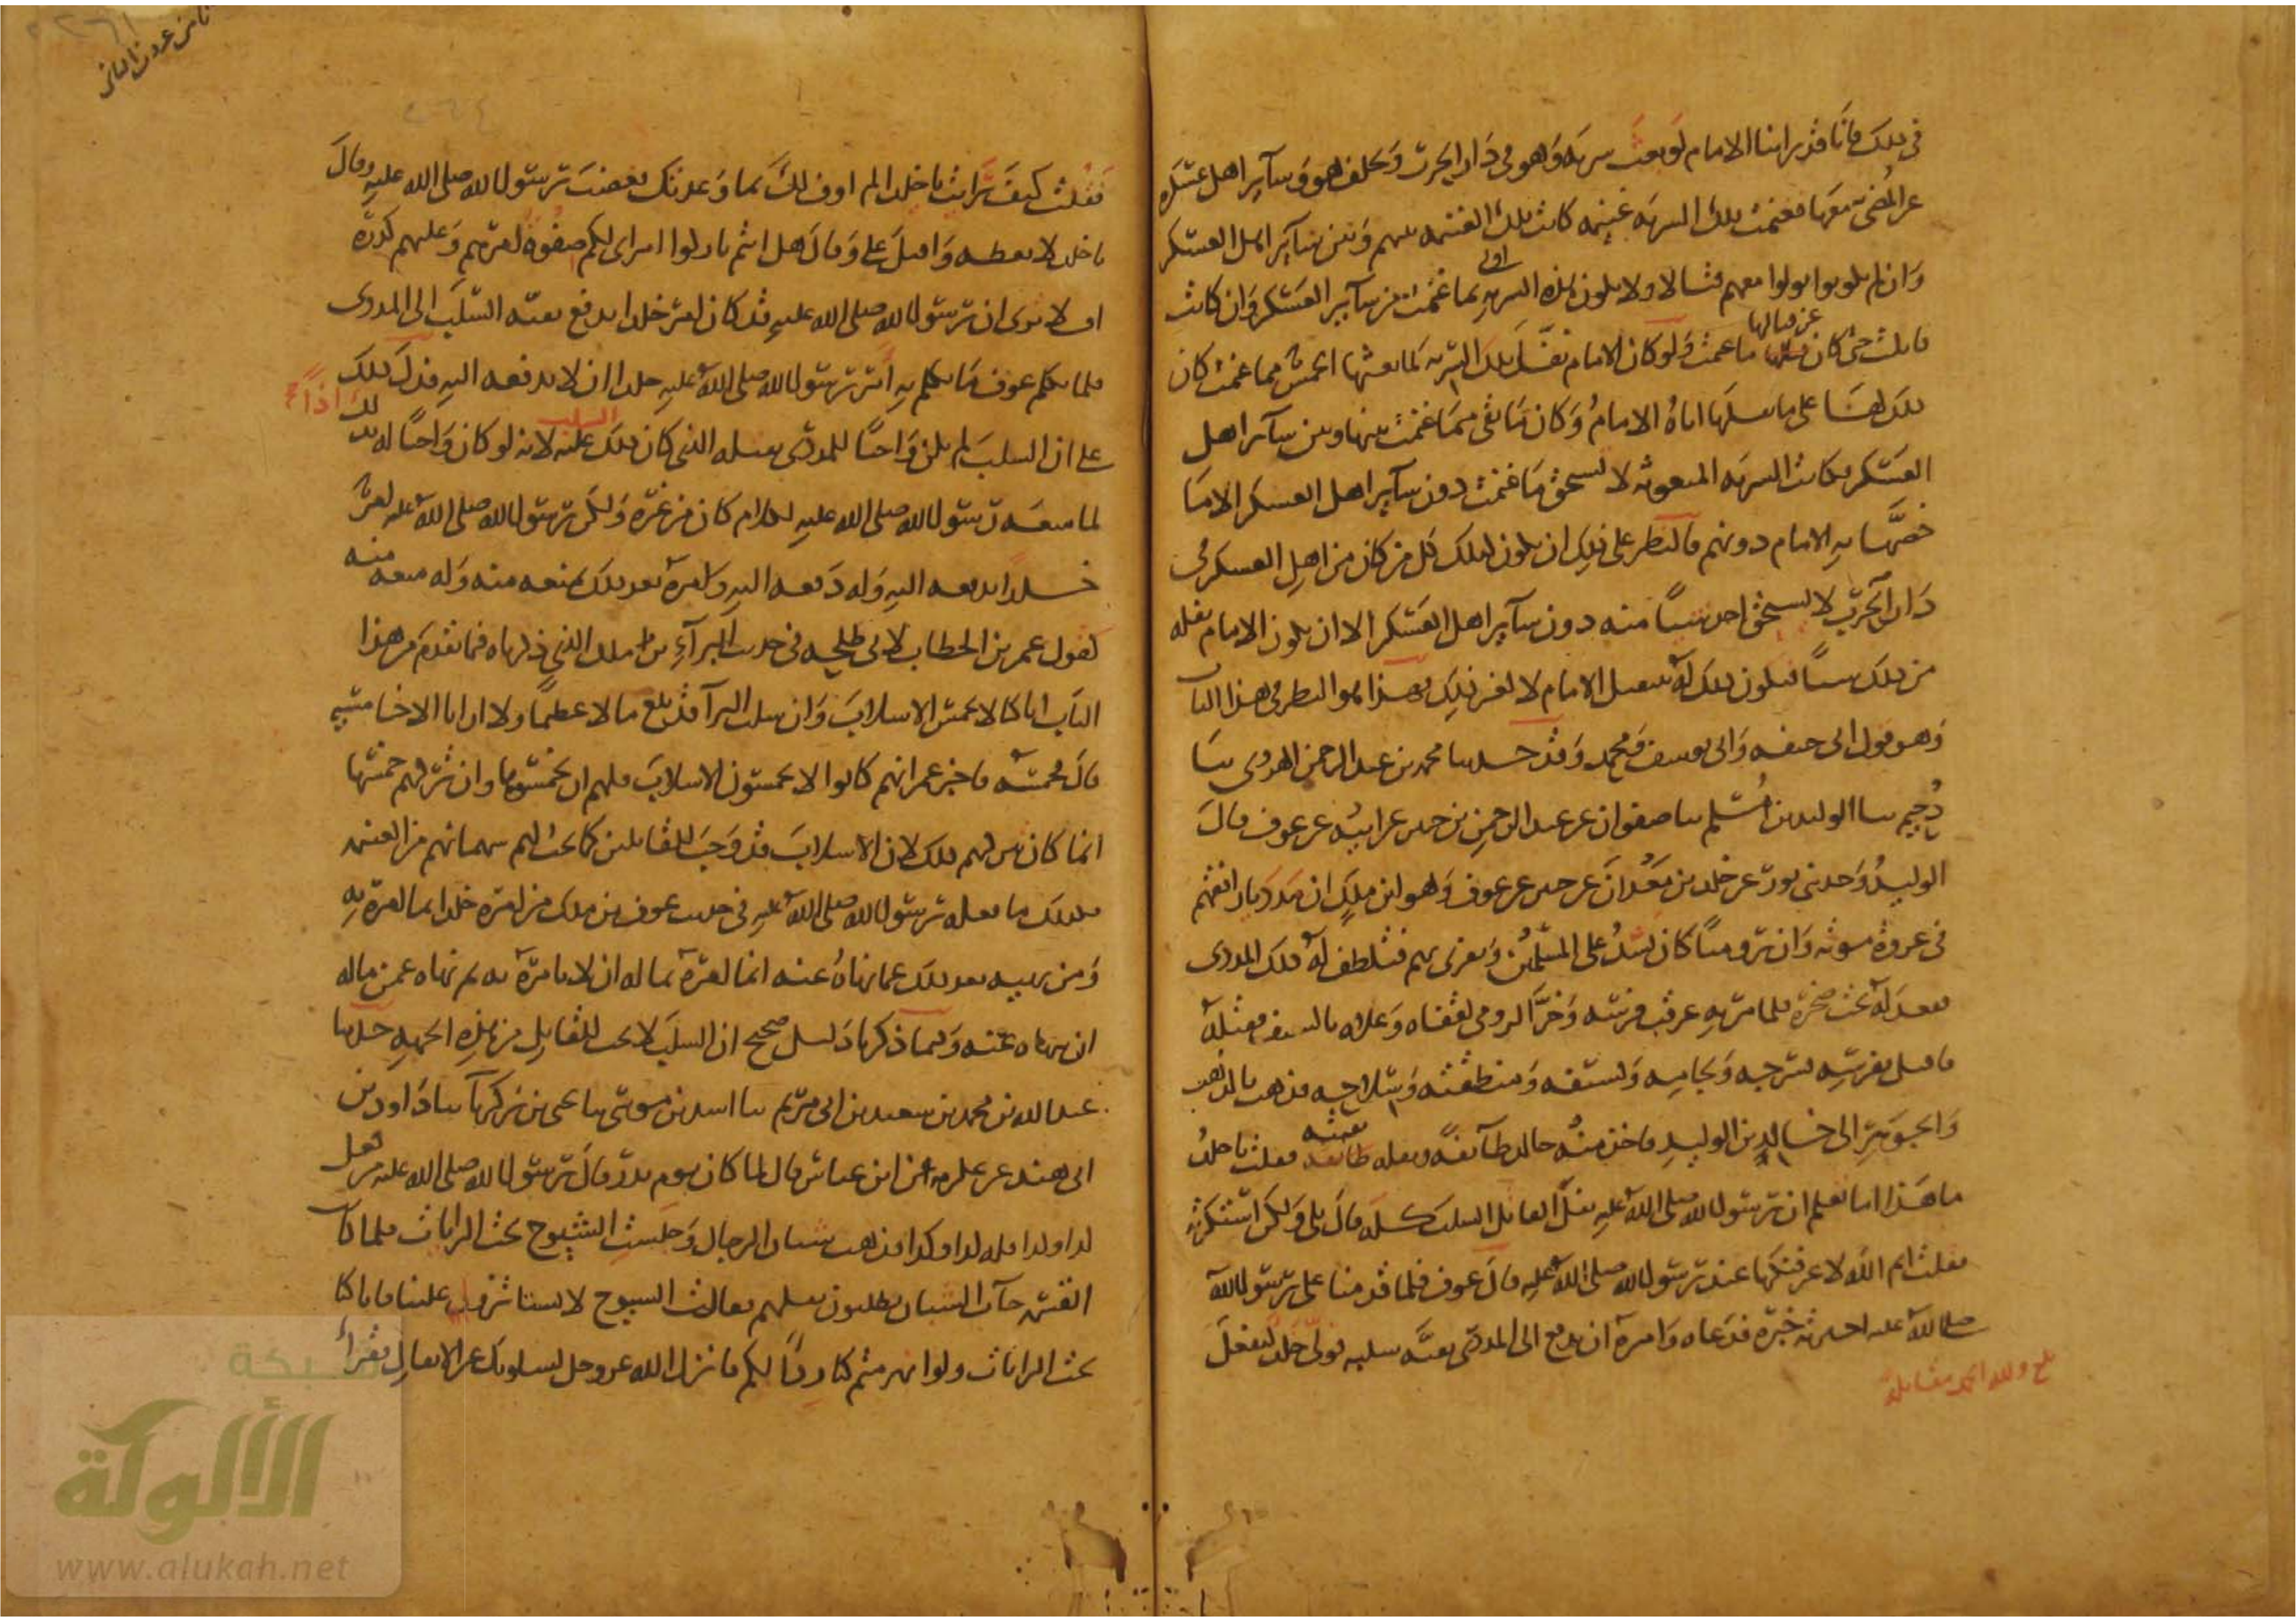 في ذلك فانا قد راينا الامام لو بعث سرية وهو في دار الحرب وتخلف هو وساير اهل عسكره
عن المضي معها فغنمت تلك السرية غنيمة كانت تلك الغنيمة بينهم وبين ساير اهل العسكر
وان لم يكونوا تولوا معهم قتالا ولا يكون هذه السرية اولى بما غنمت من ساير العسكر وان كانت
قاتلت حتى كان عن قتالها ما غنمت ولو كان الامام نفل تلك السرية لما بعثها الخمس مما غنمت كان
ذلك لها على ما نفلها اياه الامام وكان ما بقي مما غنمت بينها وبين ساير اهل
العسكر فكانت السرية المبعوثة لا تستحق ما غنمت دون ساير اهل العسكر الا ما
خصها به الامام دونهم فالنظر على ذلك ان يكون كذلك كل من كان من اهل العسكر في
دار الحرب لا يستحق احد شيا منه دون ساير اهل العسكر الا ان يكون الامام نفله
من ذلك شيا فيكون ذلك له بتنفيل الامام لا لغير ذلك فهذا هو النظر في هذا الباب
وهو قول ابي حنيفة وابي يوسف ومحمد وقد حدثنا محمد بن عبد الرحمن الهروي ثنا
دحيم ثنا الوليد بن مسلم ثنا صفوان عن عبد الرحمن بن جبير عن ابيه عن عوف قال
الوليد وحدثني ثور عن خلد بن معدان عن جبير عن عوف وهو ابن ملك ان مدديا رافقهم
في غزوة موتة وان روميا كان يشد على المسلمين ويغري بهم فتلطف له ذلك المددي
فقعد له تحت صخرة فلما مر به عرقب فرسه وخر الرومي لقفاه وعلاه بالسيف فقتله
فاقبل بفرسه بسرجه ولجامه وسيفه ومنطقته وسلاحه مذهب بالذهب
والجوهر الى خالد بن الوليد فاخذ منه خالد طايفة ونفله بقيته فقلت يا خلد
ما هذا اما تعلم ان رسول الله صلى الله عليه نفل القاتل السلب كله قال بلى ولكن استكثرته
فقلت ايم الله لاعرفنكها عند رسول الله صلى الله عليه قال عوف فلما قدمنا على رسول الله
صلى الله عليه اخبرته خبره فدعاه وامره ان يدفع الى المددي بقية سلبه فولى خلد ليفعل
بلغ ولله الحمد مقابلة
فقلت كيف رايت يا خلد الم اوف لك بما وعدتك فغضب رسول الله صلى الله عليه وقال
يا خلد لا تعطه واقبل علي وقال هل انتم تاركوا امراي لكم صفوة امرهم وعليهم كدره
افلا ترى ان رسول الله صلى الله عليه قد كان امر خلدا بدفع بقية السلب الى المددي
فلما تكلم عوف بما تكلم به امر رسول الله صلى الله عليه خلدا ان لا يدفعه اليه فدل ذلك
على ان السلب لم يكن واجبا للمددي بقتله الذي كان ذلك السلب عليه لانه لو كان واجبا له بذلك اذا
لما منعه رسول الله صلى الله عليه لكلام كان من غيره ولكن رسول الله صلى الله عليه امر
خلدا بدفعه اليه وله دفعه اليه وامره بعد ذلك بمنعه منه وله منعه منه
كقول عمر بن الخطاب لابي طلحة في حديث البرآء بن ملك الذي ذكرناه فيما تقدم من هذا
الباب انا كنا لا نخمس الاسلاب وان سلب البرآ قد بلغ مالا عظيما ولا ارانا الا خامسيه
قال فخمسه فاخبر عمر انهم كانوا لا يخمسون الاسلاب ولهم ان يخمسوها وان تركهم خمسها
انما كان بتركهم ذلك لا ان الاسلاب قد وجب للقاتلين كما يجب لهم سهمانهم من الغنيمة
فكذلك ما فعله رسول الله صلى الله عليه في حديث عوف بن ملك من امره خلدا بما امره به
ومن نهيه بعد ذلك عما نهاه عنه انما امره بما له ان لا يامره به ثم نهاه عمن ماله
ان ينهاه عنه وفيما ذكرنا دليل صحيح ان السلب لا يجب للقاتل من هذه الجهة حدثنا
عبد الله بن محمد بن سعيد بن ابي مريم ثنا اسد بن موسى ثنا يحيى بن زكريا ثنا داود بن
ابي هند عن عكرمة عن ابن عباس قال لما كان يوم بدر قال رسول الله صلى الله عليه من فعل
كذا وكذا فله كذا وكذا فذهب شبان الرجال وجلست الشيوخ تحت الرايات فلما كانت
القسمة جآت الشبان يطلبون نفلهم فقالت الشيوخ لا تستاثروا علينا فانا كنا
تحت الرايات ولو انهزمتم كنا ردا لكم فانزل الله عز وجل يسلونك عن الانفال فقرا
شبكة
الألوكة
www.alukah.net